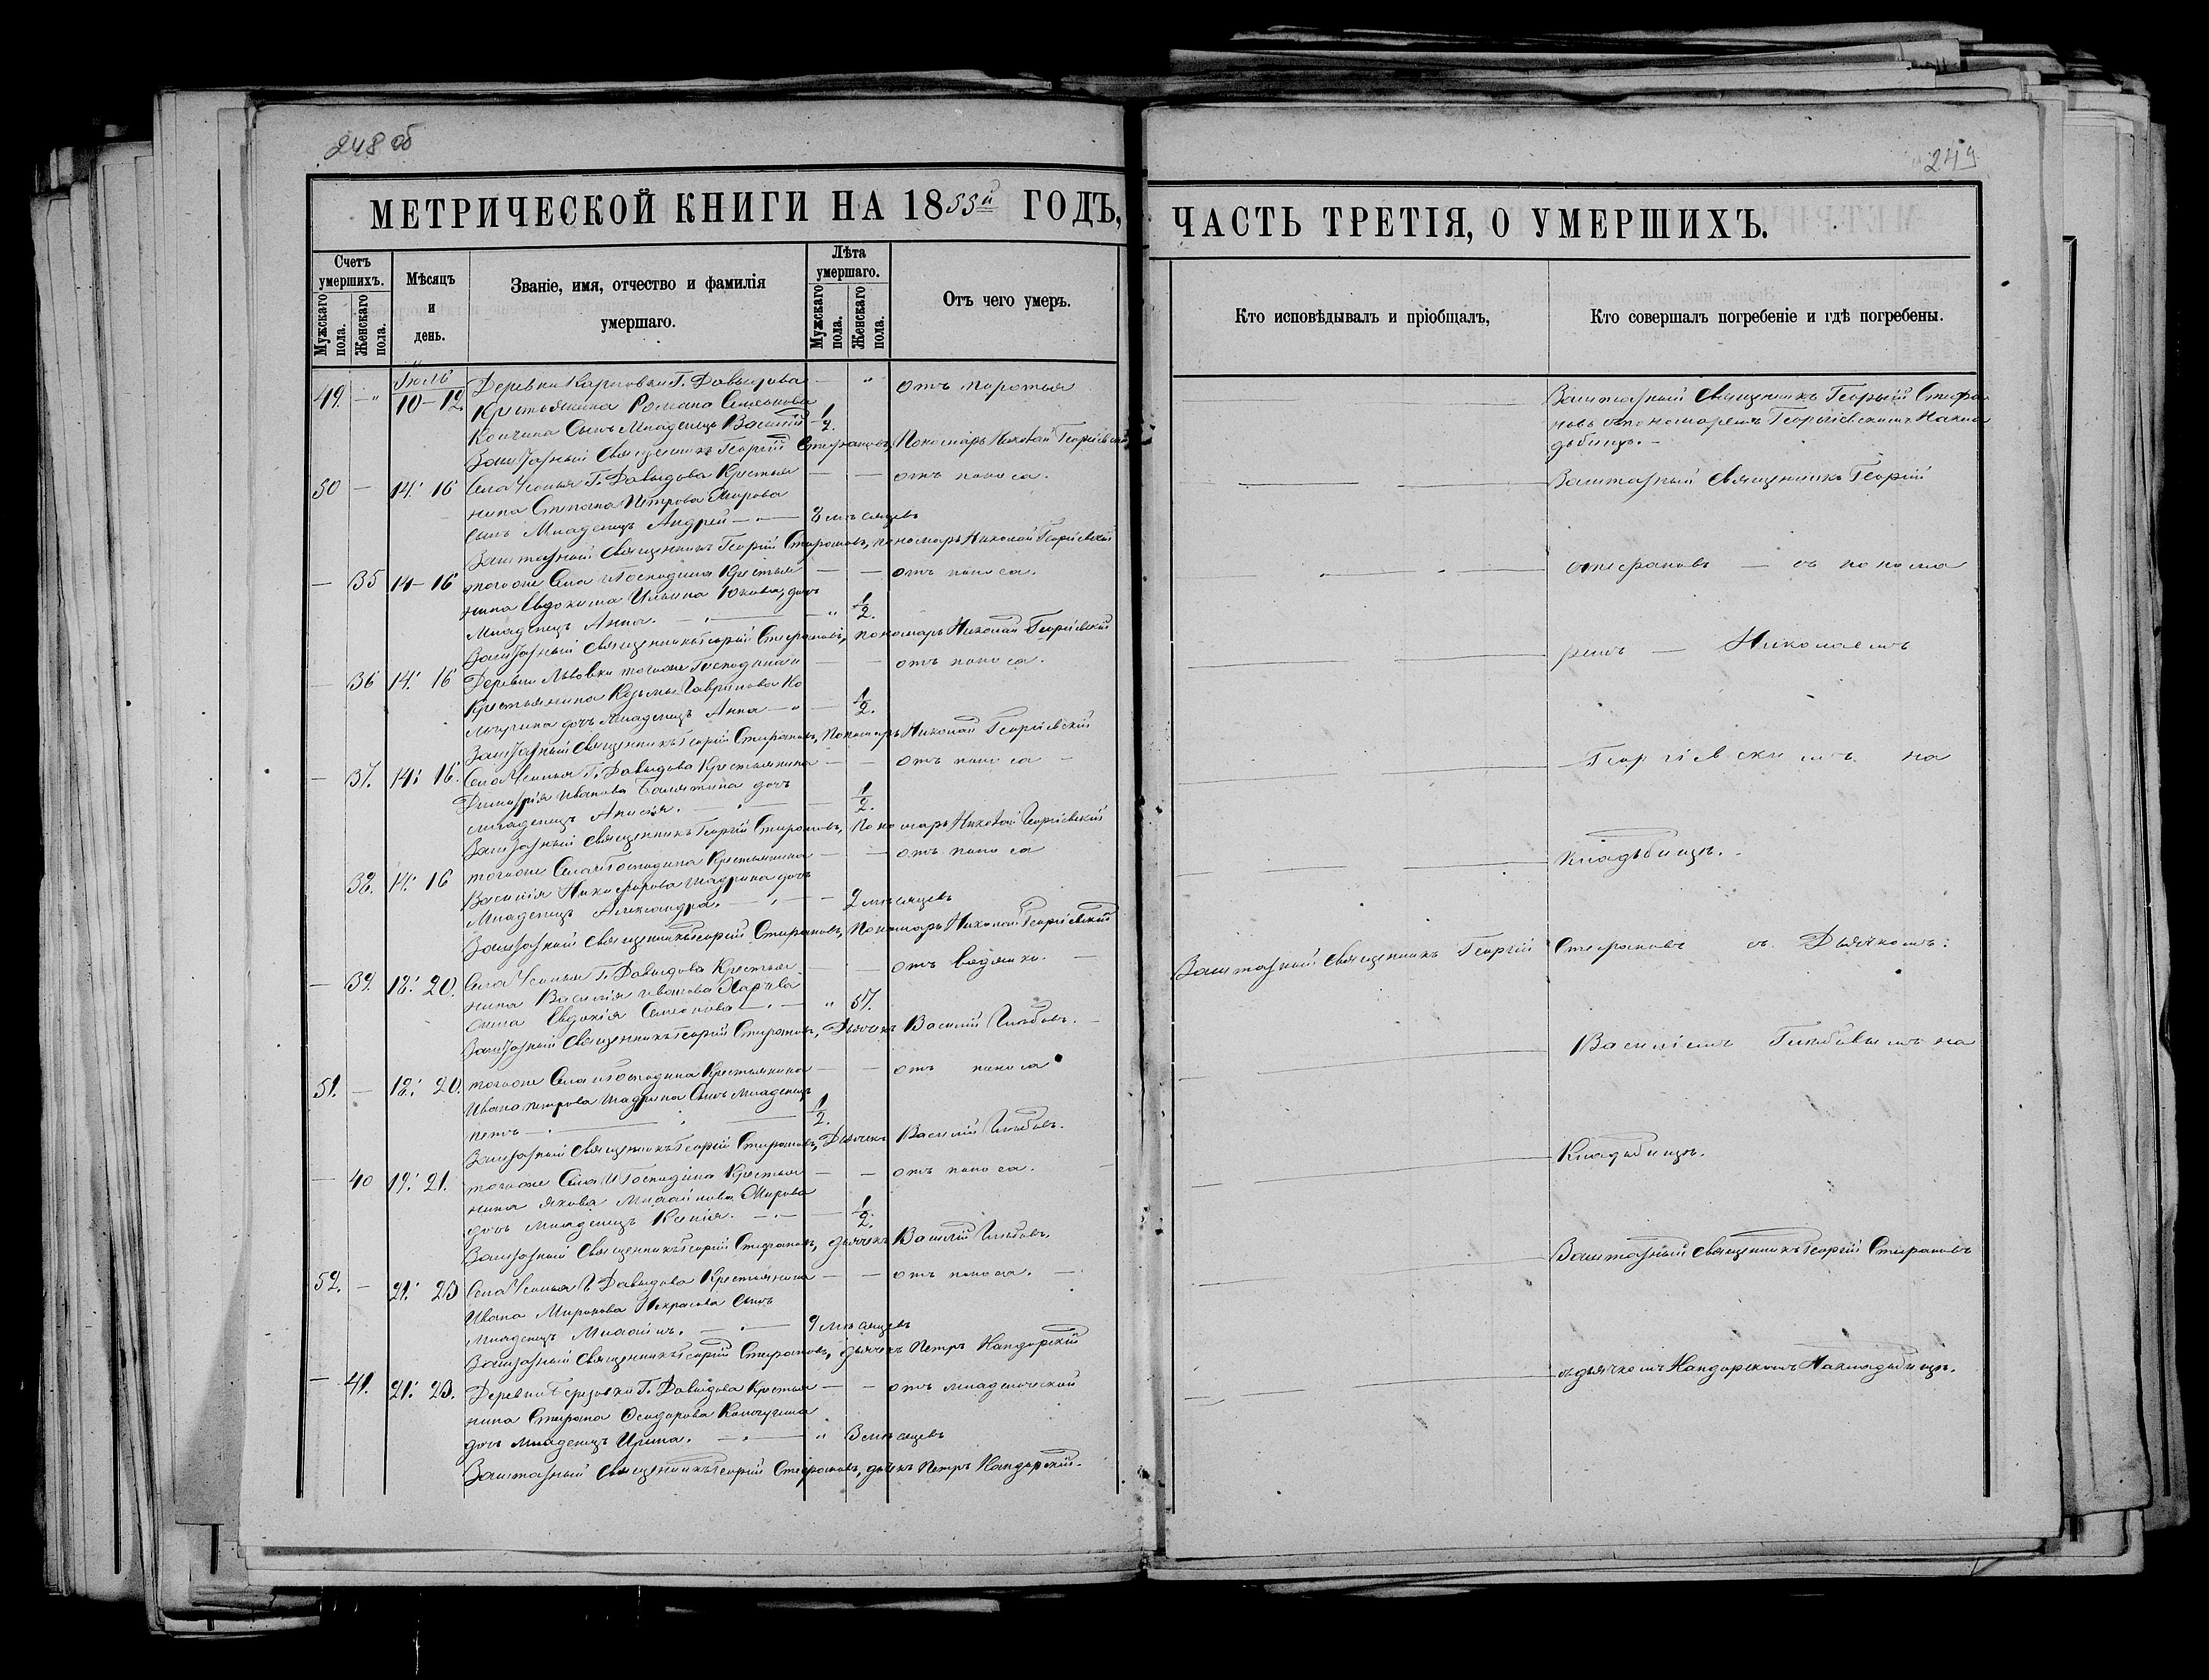 248 об
249
МЕТРИЧЕСКОЙ КНИГИ НА 1855й ГОДЪ,
ЧАСТЬ ТРЕТІЯ, О УМЕРШИХЪ.
Счетъ умершихъ.
Мужскаго пола.
Женскаго пола.
Мѣсяцъ и день.
Званіе, имя, отчество и фамилія умершаго.
Лѣта умершаго.
Мужскаго пола.
Женскаго пола.
Отъ чего умеръ.
Кто исповѣдывалъ и пріобщалъ,
Кто совершалъ погребеніе и гдѣ погребены.
Іюль
49. — 10–12 Деревни Карповки Г. Давыдова
Крестьянина Романа Семенова
сынъ Младенецъ Василій 1/2.
Отъ
Заштатный Священникъ Георгій Стефановъ, Пономарь Николай Георгіевскій
50 — 14. 16 Села Усопья Г. Давыдова Крестья
нина Степана Петрова
сынъ Младенецъ Андрей 8 мѣсяцевъ
отъ поноса.
Заштатный Священникъ Георгій Стефановъ, пономарь Николай Георгіевскій
— 35 14–16 тогоже Села и Господина Крестья
нина Евдокима Ильина Юкова, дочь
Младенецъ Анна. 1/2.
отъ поноса.
Заштатный Священникъ Георгій Стефановъ, пономарь Николай Георгіевскій
— 36 14. 16 Деревни Львовки тогоже Господина
Крестьянина Козьмы Гаврилова
дочь Младенецъ Анна 1/2.
отъ поноса.
Заштатный Священникъ Георгій Стефановъ, Пономарь Николай Георгіевскій
— 37. 14. 16. Села Усопья Г. Давыдова Крестьянина
Димитрія Иванова дочь
младенецъ Анисія. 1/2.
отъ поноса
Заштатный Священникъ Георгій Стефановъ, Пономарь Николай Георгіевскій
38. 14. 16 тогоже Села и Господина Крестьянина
Василія Никифорова Шадрина дочь
Младенецъ Александра. 2 мѣсяцевъ
отъ поноса
Заштатный Священникъ Георгій Стефановъ, Пономарь Николай Георгіевскій
— 39. 18. 20. Села Усопья Г. Давыдова Крестья
нина Василія Иванова
жена Евдокія Семенова 57.
отъ водянки.
Заштатный Священникъ Георгій Стефановъ, Дьячекъ Василій Глѣбовъ.
51. — 18. 20. тогоже Села и Господина Крестьянина
Ивана Петрова Шадрина Сынъ Младенецъ
Петръ 1/2.
отъ поноса
Заштатный Священникъ Георгій Стефановъ, Дьячекъ Василій Глѣбовъ.
— 40 19. 21. тогоже Села и Господина Крестья
нина Якова Михайлова
дочь Младенецъ Ксенія. 1/2.
отъ поноса.
Заштатный Священникъ Георгій Стефановъ, дьячекъ Василій Глѣбовъ.
52. — 21. 23 Села Усопья Г. Давыдова Крестьянина
Ивана Миронова Некрасова Сынъ
Младенецъ Михаилъ. 9 мѣсяцевъ
отъ поноса.
Заштатный Священникъ Георгій Стефановъ, дьячекъ Петръ Кандорскій
— 41. 21. 23. Деревни Березовки Г. Давыдова Крестья
нина Стефана Ѳеодорова
дочь младенецъ Ирина. 3 мѣсяцевъ
отъ младенческой
Заштатный Священникъ Георгій Стефановъ, дьячекъ Петръ Кандорскій.
Заштатный Священникъ Георгій Стефа
новъ съ пономаремъ Георгіевскимъ На кла
дбищѣ. —
Заштатный Священникъ Георгій
Стефановъ — съ понома
ремъ — Николаемъ
Георгіевскимъ на
кладбищѣ.
Заштатный Священникъ Георгій Стефановъ съ Дьячкомъ
Василіемъ Глѣбовымъ на
Кладбищѣ.
Заштатный Священникъ Георгій Стефановъ
съ дьячкомъ Кандорскимъ На кладбищѣ.